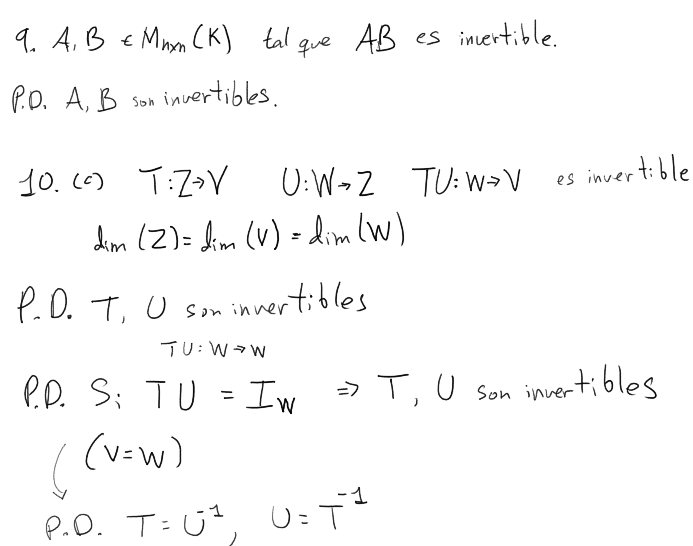 9. A, B ∈ Mnxn (K) tal que AB es invertible.
P.D. A, B son invertibles.
10. (c) T:Z→V U:W→Z TU:W→V es invertible
dim (Z) = dim (V) = dim (W)
P.D. T, U son invertibles
TU:W→W
P.D. Si TU = I_W ⇒ T, U son invertibles
(V=W)
P.D. T = U⁻¹, U = T⁻¹